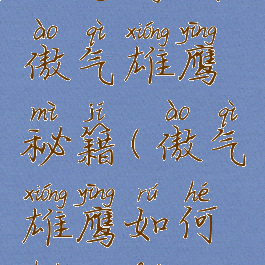 ào qì xióng yīng
傲气雄鹰
mì jí ào qì
秘籍(傲气
xióng yīng rú hé
雄鹰如何